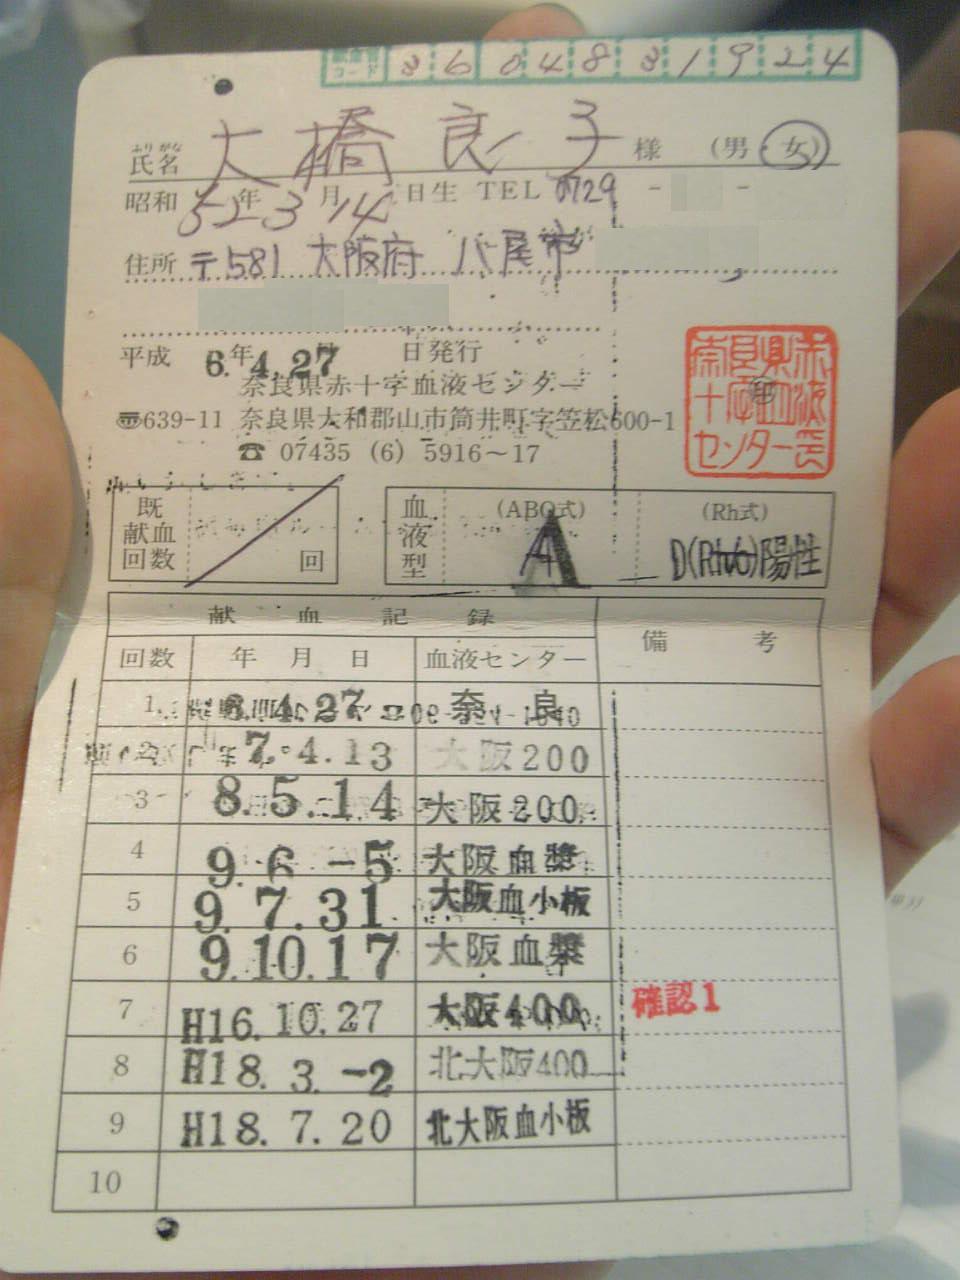 献血者コード 3604831924
ふりがな
氏名 大橋良子 様 (男・女)
昭和52年3月14日生 TEL 0729 - -
住所 〒581 大阪府 八尾市
平成 6.年4.27 日発行
奈良県赤十字血液センター
〠639-11 奈良県大和郡山市筒井町字笠松600-1
☎ 07435 (6) 5916〜17
奈良県赤十字血液センター長印
既献血回数 回
血液型 (ABO式) A (Rh式) D(Rho)陽性
献血記録 備考
回数 年月日 血液センター
1 6.4.27 奈良
2 7.4.13 大阪200
3 8.5.14 大阪200
4 9.6.-5 大阪血漿
5 9.7.31 大阪血小板
6 9.10.17 大阪血漿
7 H16.10.27 大阪400 確認1
8 H18.3.-2 北大阪400
9 H18.7.20 北大阪血小板
10